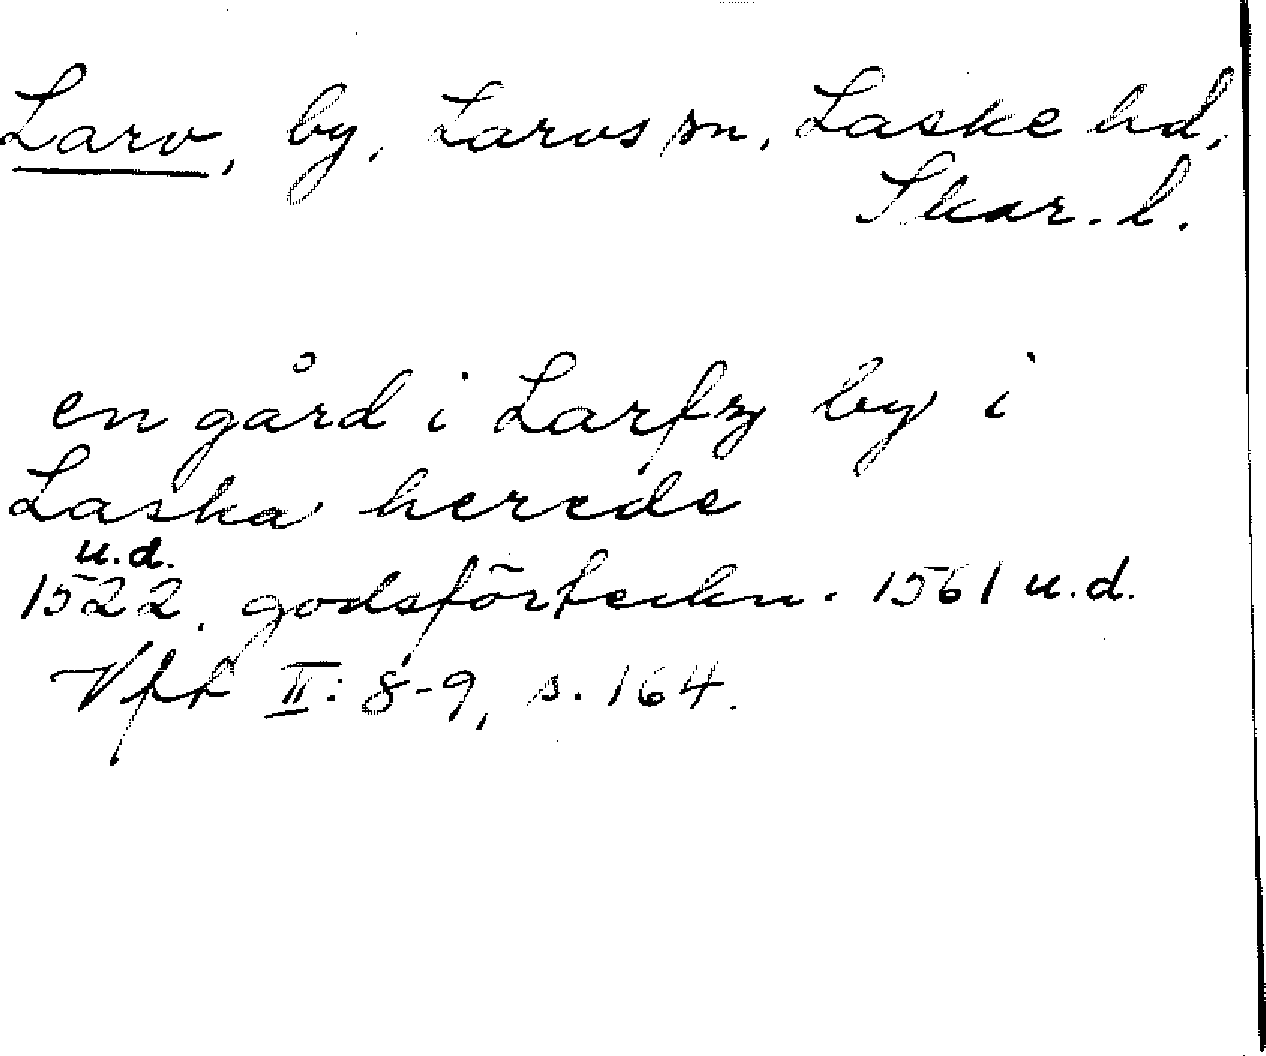 Larv, by, Larvs sn, Laske hd,
Skar. l.
en gård i Larfz by i
Laska herede
u.d.
1522. godsförteckn. 1561 u.d.
Vfft II: 8-9, s. 164.